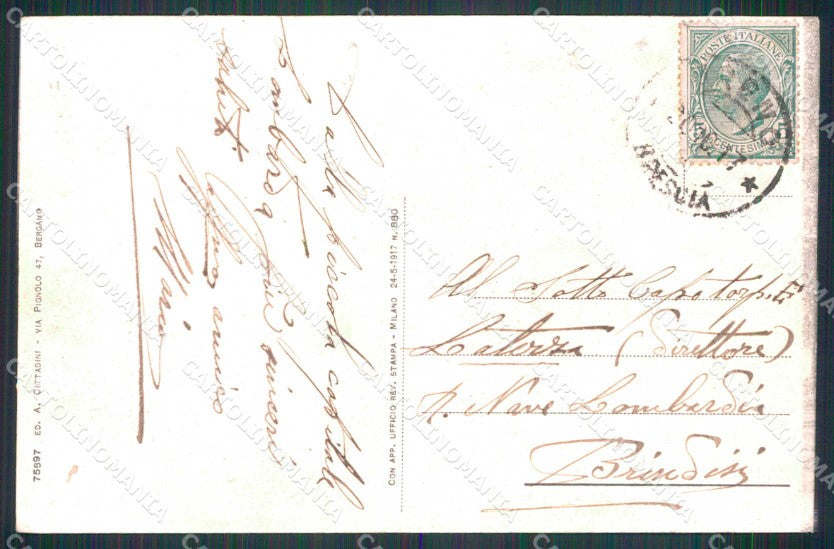 Dalla piccola capitale
Lombarda più sinceri
saluti
Tuo amico
Mario
75897 ED. A. CITTADINI - VIA PIGNOLO 47, BERGAMO
CON APP. UFFICIO REV. STAMPA - MILANO 24-5-1917 N. 880
POSTE ITALIANE
CENTESIMI
Al Sotto Capo torp.
Laterza (Silettore)
R. Nave Lombardia
Brindisi
CARTOLINOMANIA